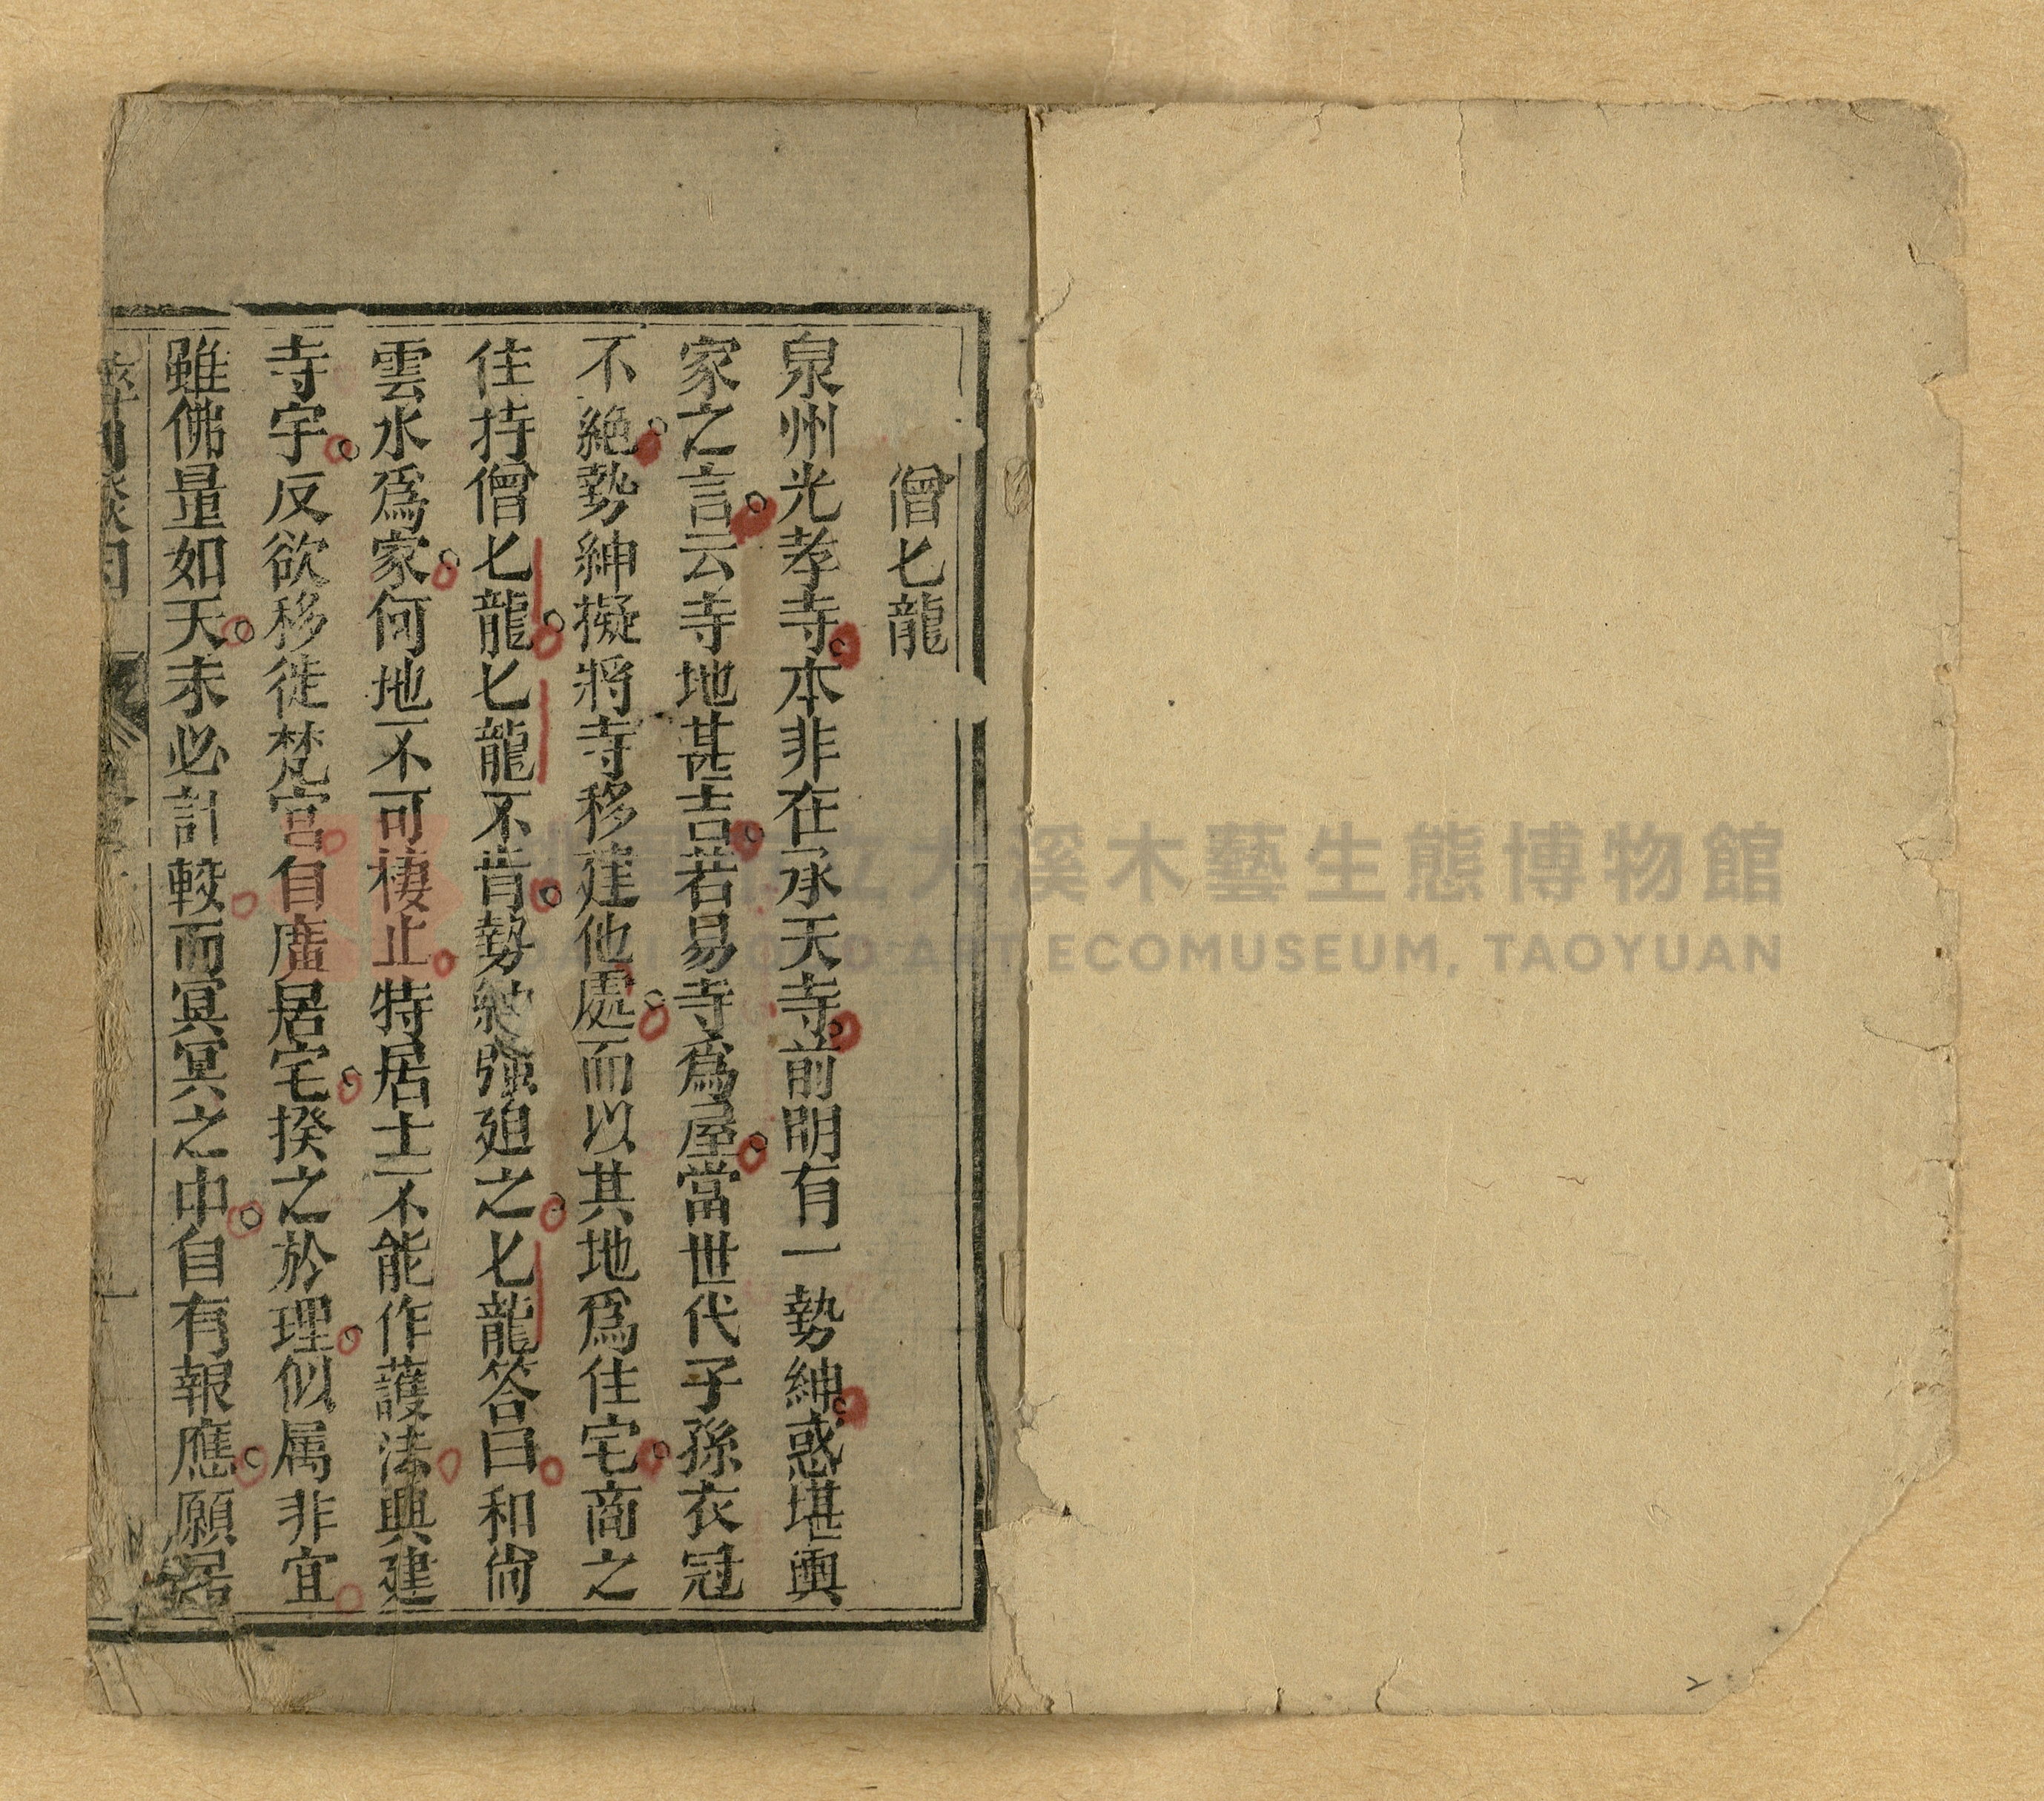 僧七龍
泉州光孝寺。本非在承天寺。前明有一勢紳。惑堪輿
家之言。云寺地甚吉。若易寺爲屋。當世代子孫衣冠
不絶。勢紳擬將寺移建他處。而以其地爲住宅。商之
住持僧七龍。七龍不肯。勢紳強廹之。七龍答曰。和尙
雲水爲家。何地不可棲止。特居士不能作護法。興建
寺宇。反欲移徙梵宮。自廣居宅。揆之於理。似属非宜。
雖佛量如天。未必計較。而冥冥之中。自有報應。願居
大溪木藝生態博物館
DAXI WOOD ART ECOMUSEUM, TAOYUAN